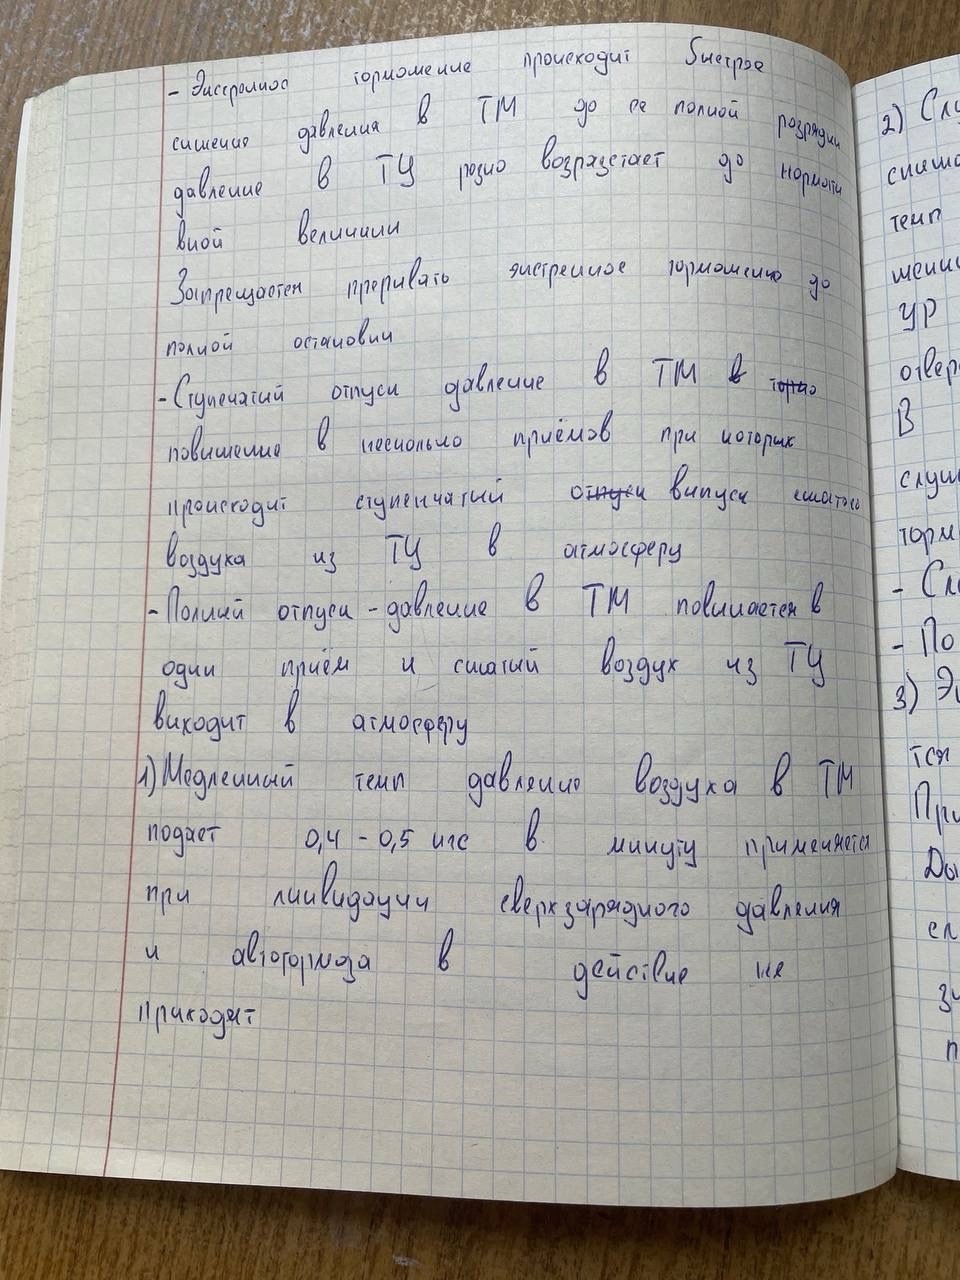 - Экстренное торможение происходит быстрое
снижение давления в ТМ до ее полной розрядки
давление в ТЦ резко возрастает до нормати
вной величини
Запрещается преривать экстренное торможение до
полной остановки
- Ступенчатий отпуск давление в ТМ в
повишение в несколько приёмов при которих
происходит ступенчатий отпуск випуск сжатого
воздуха из ТЦ в атмосферу
- Полний отпуск - давление в ТМ повишается в
один приём и сжатий воздух из ТЦ
виходит в атмосферу
1) Медленний темп давление воздуха в ТМ
подает 0,4 - 0,5 кгс в минуту применяется
при ликвидации сверхзарядного давления
и автотормоза в действие не
приходят
2) Слу
сниже
темп
жении
УР
отвер
В
служ
торм
- Сл
- По
3) Э
тся
При
ды
сл
зи
п